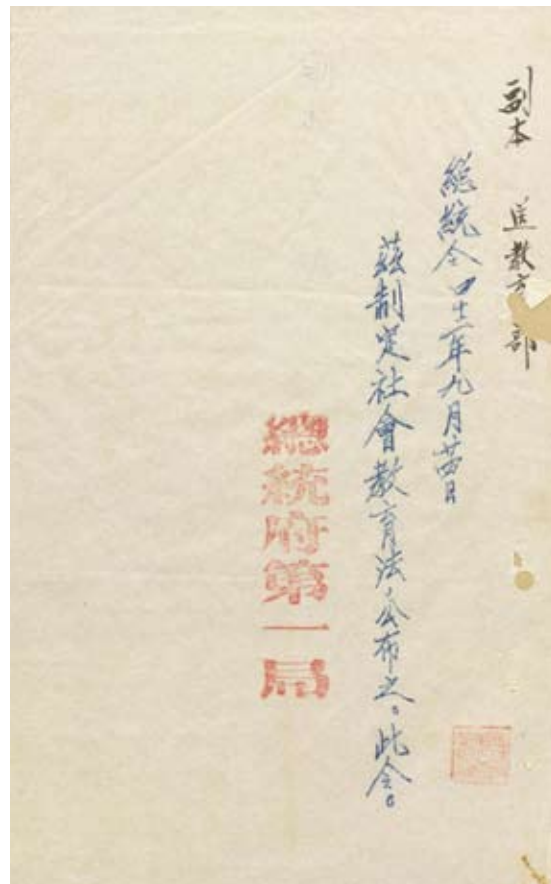 副本　送教育部
總統令 四十二年九月廿四日
茲制定社會教育法，公布之。此令。
總統府第一局